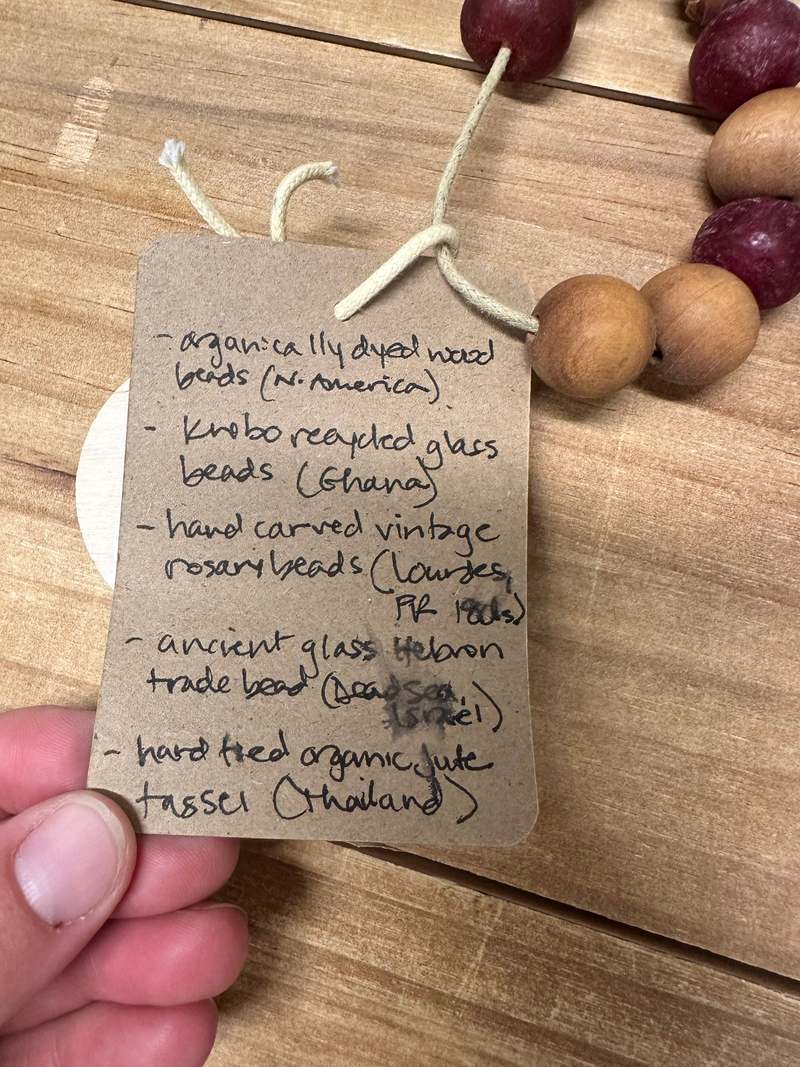 - organically dyed wood
beads (N. America)
- Krobo recycled glass
beads (Ghana)
- hand carved vintage
rosary beads (Lourdes,
FR
- ancient glass Hebron
trade bead (Dead Sea,
Israel)
- hand tied organic jute
tassel (Thailand)